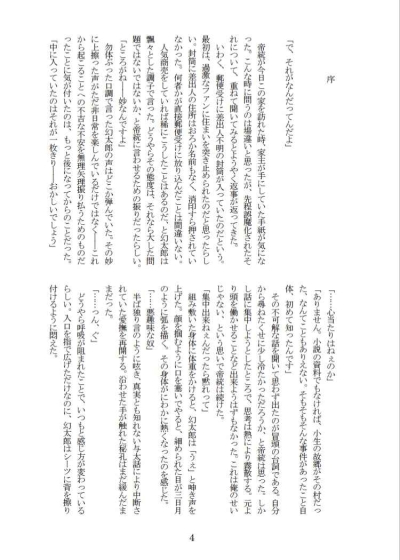 序
「で、それがなんだってんだよ」
　帝統が今日この家を訪れた時、家主が手にしていた手紙が気にな
った。こんな時に問うのは場違いと思ったが、先程誤魔化されたそ
れについて、重ねて聞いてみるとようやく返事が返ってきた。
　いわく、郵便受けに差出人不明の封筒が入っていたのだという。
最初は、過激なファンに住まいを突き止められたのだと思ったらし
い。封筒に差出人の住所はおろか名前もなく、消印すら押されてい
なかった。何者かが直接郵便受けに放り込んだことは間違いない。
　人気商売をしていれば稀にこうしたことはあるのだ、と幻太郎は
飄々とした調子で言った。どうやらその態度は、それなら大した問
題ではないではないか、と帝統に言わせるための振りだったらしい。
「ところがね――妙なんですよ」
　勿体ぶった口調で言った幻太郎の声はどこか弾んでいた。その妙
に上擦った声がただ非日常を楽しんでいるだけではなく――これ
から起こることへの不吉な不安を無理矢理振り払うためのものだ
ったことに気が付いたのは、もっと後になってからのことだった。
「中に入っていたのはそれが一枚きり――おかしいでしょう」
「……心当たりはねぇのか」
「ありません。小説の資料でもなければ、小生の故郷がその村だっ
た、なんてこともありえない。そもそもそんな事件があったこと自
体、初めて知ったんです」
　その不可解な話を聞いて思わず出たのが冒頭の台詞である。自分
から尋ねたくせに少し冷たかっただろうか、と帝統は思った。しか
し話に集中しようとしたところで、思考は熱により霧散する。元よ
り頭を働かせることなど出来ようはずもなかった。これは俺のせい
じゃない、という思いで帝統は続けた。
「集中出来ねぇんだったら黙れって」
　組み敷いた身体に体重をかけると、幻太郎は「うぇ」と呻き声を
上げた。顔を掴むように口を塞いでやると、細められた目が三日月
のように弧を描く。その身体がにわかに熱くなったのを感じた。
「……悪趣味な奴」
　半ば独り言のように呟き、真実とも知れない与太話により中断さ
れていた愛撫を再開する。沿わせた手が触れた秘孔はまだ緩んだま
まだった。
「……っん、ぐ」
　どうやら呼吸が阻まれたことで、いつもと感じ方が変わっている
らしい。入口を指で広げただけなのに、幻太郎はシーツに背を擦り
付けるように悶えた。
4